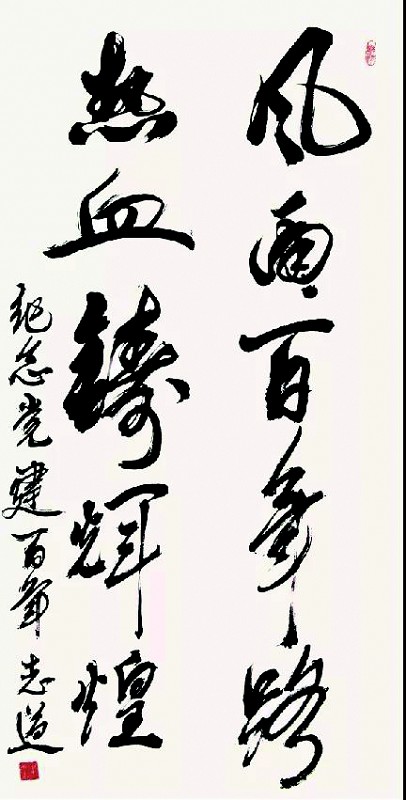 风雨百年路
热血铸辉煌
纪念党建百年 志道